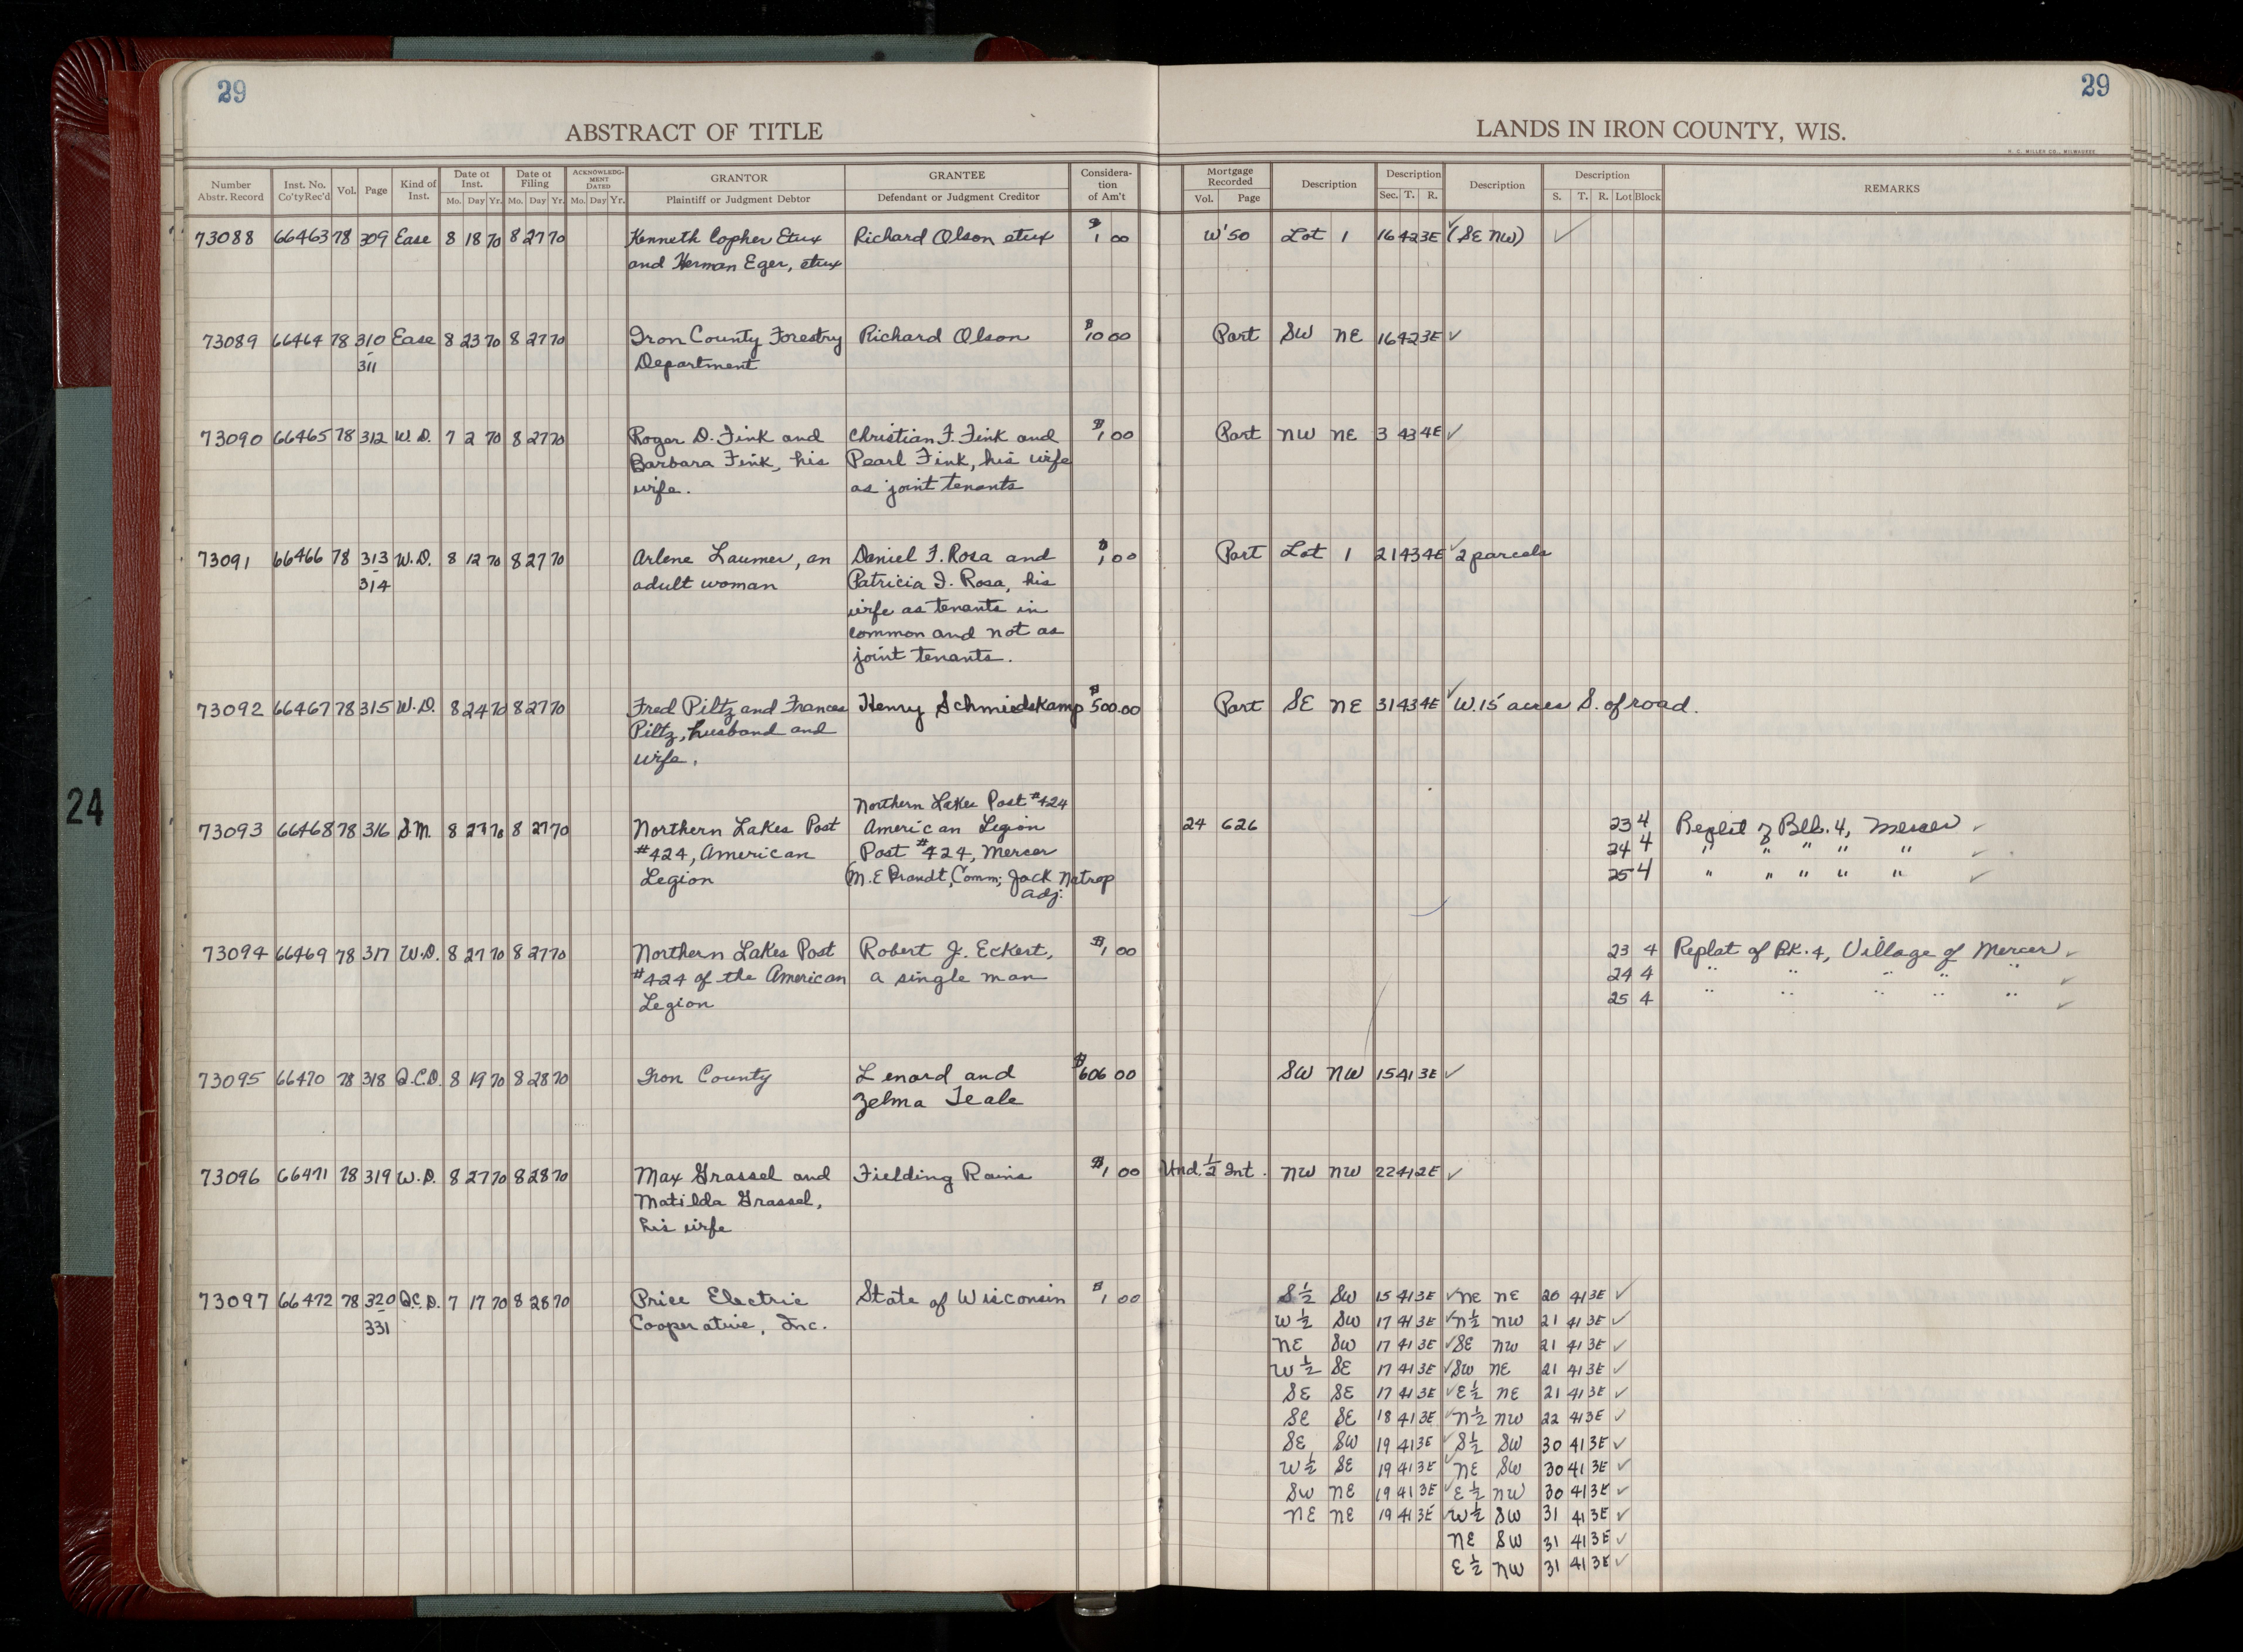 29
29
ABSTRACT OF TITLE
LANDS IN IRON COUNTY, WIS.
H. C. MILLER CO., MILWAUKEE
Number Abstr. Record Inst. No. Co'ty Rec'd Vol. Page Kind of Inst. Date of Inst. Mo. Day Yr. Date of Filing Mo. Day Yr. ACKNOWLEDGMENT DATED Mo. Day Yr. GRANTOR Plaintiff or Judgment Debtor GRANTEE Defendant or Judgment Creditor Consideration of Am't Mortgage Recorded Vol. Page Description Description Sec. T. R. Description Description S. T. R. Lot Block REMARKS
73088 66463 78 309 Ease 8 18 70 8 27 70 Kenneth Copher Etux Richard Olson etux $1 00 W'50 Lot 1 16 42 3E ✓ (SE NW) ✓
and Herman Eger, etux
73089 66464 78 310 Ease 8 23 70 8 27 70 Iron County Forestry Richard Olson $10 00 Part SW NE 16 42 3E ✓
- 311 Department
73090 66465 78 312 W.D. 7 2 70 8 27 70 Roger D. Fink and Christian F. Fink and $1 00 Part NW NE 3 43 4E ✓
Barbara Fink, his Pearl Fink, his wife
wife. as joint tenants
73091 66466 78 313 W.D. 8 12 70 8 27 70 Arlene Laumer, an Daniel F. Rosa and $1 00 Part Lot 1 21 43 4E ✓ 2 parcels
- 314 adult woman Patricia I. Rosa, his
wife as tenants in
common and not as
joint tenants.
73092 66467 78 315 W.D. 8 24 70 8 27 70 Fred Piltz and Frances Henry Schmiedskamp $500.00 Part SE NE 31 43 4E ✓ W. 15 acres S. of road.
Piltz, husband and
wife.
Northern Lakes Post #424
73093 66468 78 316 S.M. 8 27 70 8 27 70 Northern Lakes Post American Legion 24 626 23 4 Replat of Blk. 4, Mercer ✓
#424, American Post #424, Mercer 24 4 " " " " " ✓
Legion M. E Brandt, Comm; Jack Natrop 25 4 " " " " " ✓
Adj.
73094 66469 78 317 W.D. 8 27 70 8 27 70 Northern Lakes Post Robert J. Eckert, $1 00 23 4 Replat of BK. 4, Village of Mercer ✓
#424 of the American a single man 24 4 " " " " " ✓
Legion 25 4 " " " " " ✓
73095 66470 78 318 Q.C.D. 8 19 70 8 28 70 Iron County Lenard and $606 00 SW NW 15 41 3E ✓
Zelma Teale
73096 66471 78 319 W.D. 8 27 70 8 28 70 Max Grassel and Fielding Rains $1 00 Und. 1/2 Int. NW NW 22 41 2E ✓
Matilda Grassel,
his wife
73097 66472 78 320 Q.C.D. 7 17 70 8 28 70 Price Electric State of Wisconsin $1 00 S 1/2 SW 15 41 3E ✓ NE NE 20 41 3E ✓
- 331 Cooperative, Inc. W 1/2 SW 17 41 3E ✓ N 1/2 NW 21 41 3E ✓
NE SW 17 41 3E ✓ SE NW 21 41 3E ✓
W 1/2 SE 17 41 3E ✓ SW NE 21 41 3E ✓
SE SE 17 41 3E ✓ E 1/2 NE 21 41 3E ✓
SE SE 18 41 3E ✓ N 1/2 NW 22 41 3E ✓
SE SW 19 41 3E ✓ S 1/2 SW 30 41 3E ✓
W 1/2 SE 19 41 3E ✓ NE SW 30 41 3E ✓
SW NE 19 41 3E ✓ E 1/2 NW 30 41 3E ✓
NE NE 19 41 3E ✓ W 1/2 SW 31 41 3E ✓
NE SW 31 41 3E ✓
E 1/2 NW 31 41 3E ✓
24